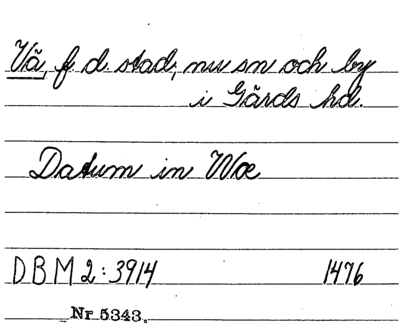 Vä, f. d. stad, nu sn och by
i Gärds hd.
Datum in Woe
DBM 2:3914 1476
Nr 5343.